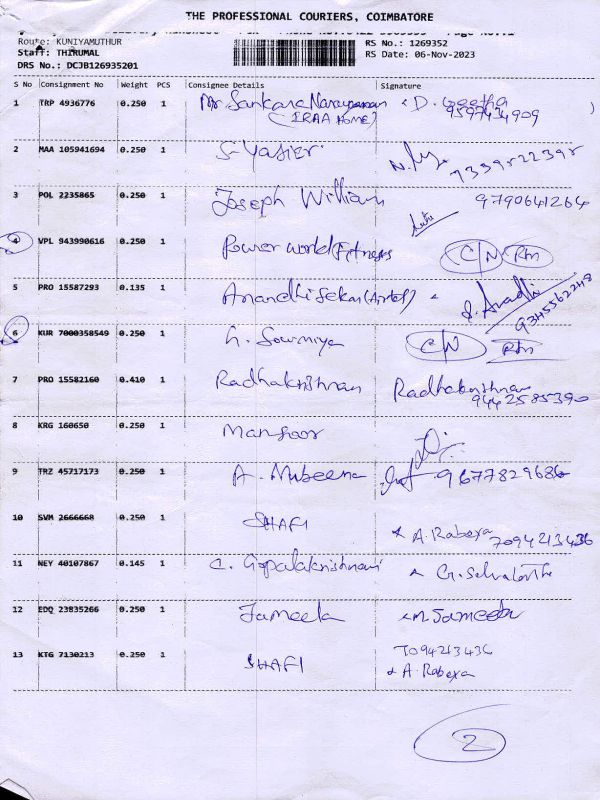 THE PROFESSIONAL COURIERS, COIMBATORE
Route: KUNIYAMUTHUR RS No.: 1269352
Staff: THIRUMAL RS Date: 06-Nov-2023
DRS No.: DCJB126935201
S No Consignment No Weight PCS Consignee Details Signature
1 TRP 4936776 0.250 1 Mr. Sankara Narayanan D. Geetha
(IRAA HOME) 9597434909
2 MAA 105941694 0.250 1 S. Yasier 7339822398
3 POL 2235865 0.250 1 Joseph William 9790641264
4 VPL 943990616 0.250 1 Power world Fitness C/N Rtn
5 PRO 15587293 0.135 1 Anandhi Sekar (Airtel)
9345562248
6 KUR 7000358549 0.250 1 G. Sowmiya C/N Rtn
7 PRO 15582160 0.410 1 Radhakrishnan Radhakrishnan
9442585390
8 KRG 160650 0.250 1 Mansoor
9 TRZ 45717173 0.250 1 A. Mubeena 9677829686
10 SVM 2666668 0.250 1 SHAFI A. Rabeya
7094213436
11 NEY 40107867 0.145 1 C. Gopalakrishnan
12 EDQ 23835266 0.250 1 Jameela M. Jameela
13 KTG 7130213 0.250 1 SHAFI 7094213436
A. Rabeya
2